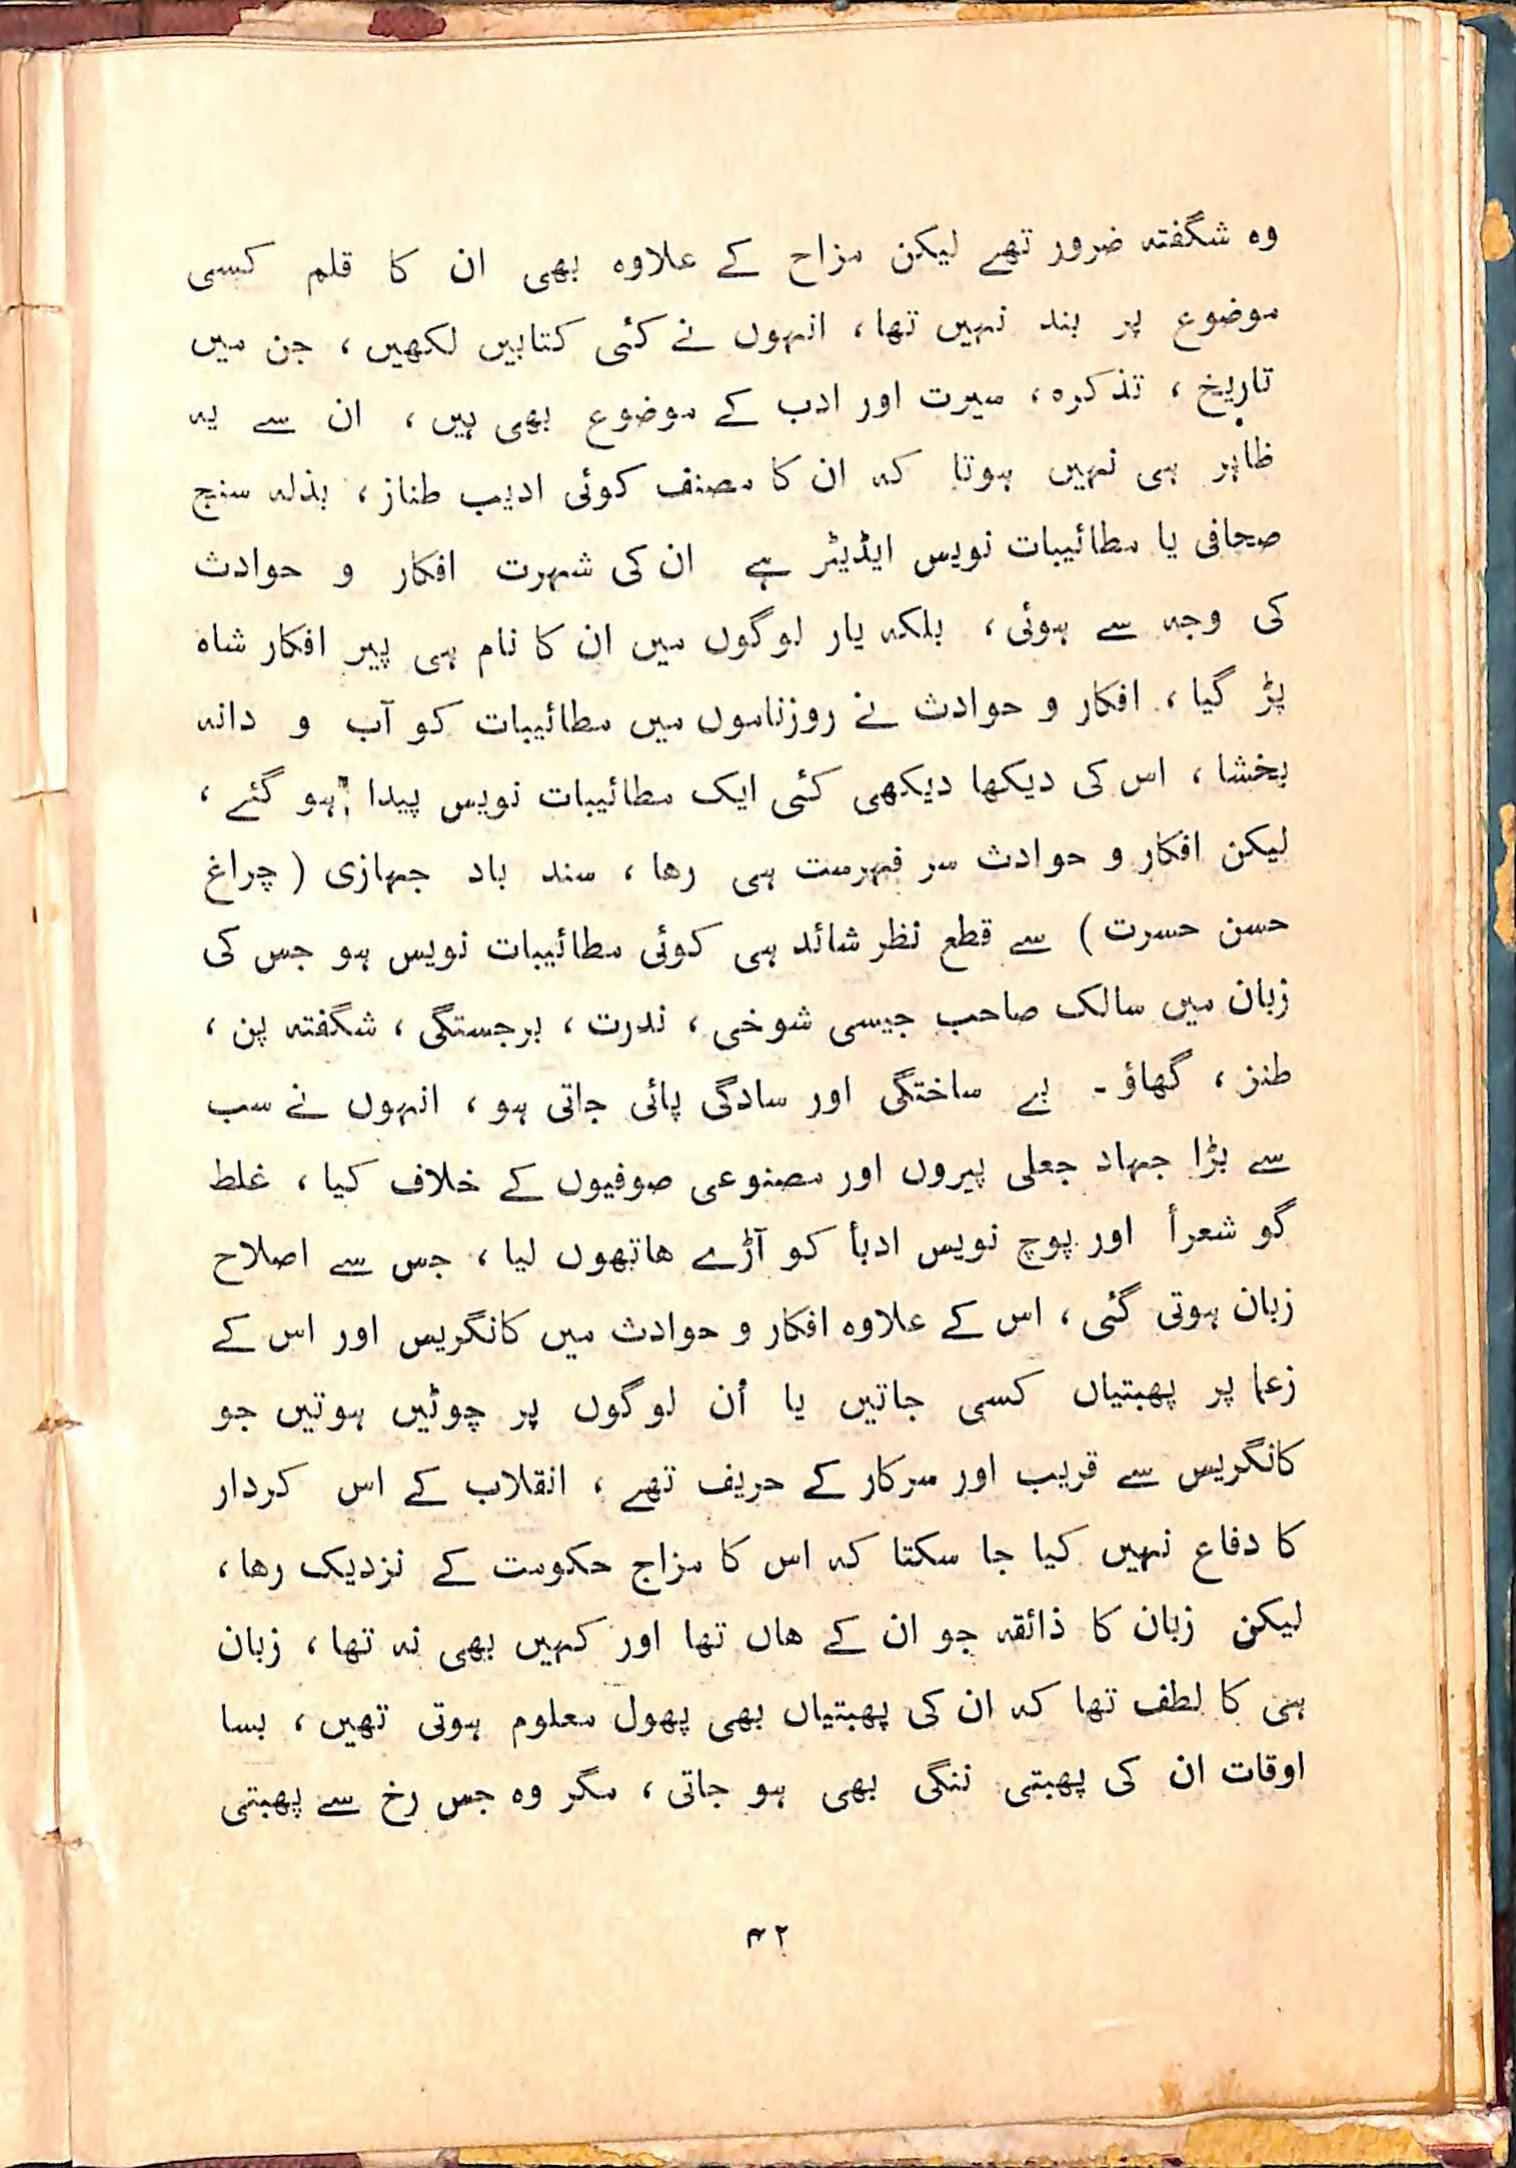 وہ شگفتہ ضرور تھے لیکن مزاح کے علاوہ بھی ان کا قلم کسی
موضوع پر بند نہیں تھا، انہوں نے کئی کتابیں لکھیں، جن میں
تاریخ، تذکرہ، سیرت اور ادب کے موضوع بھی ہیں، ان سے یہ
ظاہر ہی نہیں ہوتا کہ ان کا مصنف کوئی ادیب طناز، بذلہ سنج
صحافی یا مطائیبات نویس ایڈیٹر ہے ان کی شہرت افکار و حوادث
کی وجہ سے ہوئی، بلکہ یار لوگوں میں ان کا نام ہی پیر افکار شاہ
پڑ گیا، افکار و حوادث نے روزناموں میں مطائیبات کو آب و دانہ
بخشا، اس کی دیکھا دیکھی کئی ایک مطائیبات نویس پیدا ہو گئے،
لیکن افکار و حوادث سر فہرست ہی رھا، سند باد جہازی (چراغ
حسن حسرت) سے قطع نظر شائد ہی کوئی مطائیبات نویس ہو جس کی
زبان میں سالک صاحب جیسی شوخی، ندرت، برجستگی، شگفتہ پن،
طنز، گھاؤ۔ بے ساختگی اور سادگی پائی جاتی ہو، انہوں نے سب
سے بڑا جہاد جعلی پیروں اور مصنوعی صوفیوں کے خلاف کیا، غلط
گو شعرأ اور پوچ نویس ادبأ کو آڑے ھاتھوں لیا، جس سے اصلاح
زبان ہوتی گئی، اس کے علاوہ افکار و حوادث میں کانگریس اور اس کے
زعما پر پھبتیاں کسی جاتیں یا اُن لوگوں پر چوٹیں ہوتیں جو
کانگریس سے قریب اور سرکار کے حریف تھے، انقلاب کے اس کردار
کا دفاع نہیں کیا جا سکتا کہ اس کا مزاج حکومت کے نزدیک رھا،
لیکن زبان کا ذائقہ جو ان کے ھاں تھا اور کہیں بھی نہ تھا، زبان
ہی کا لطف تھا کہ ان کی پھبتیاں بھی پھول معلوم ہوتی تھیں، بسا
اوقات ان کی پھبتی ننگی بھی ہو جاتی، مگر وہ جس رخ سے پھبتی
۴۲